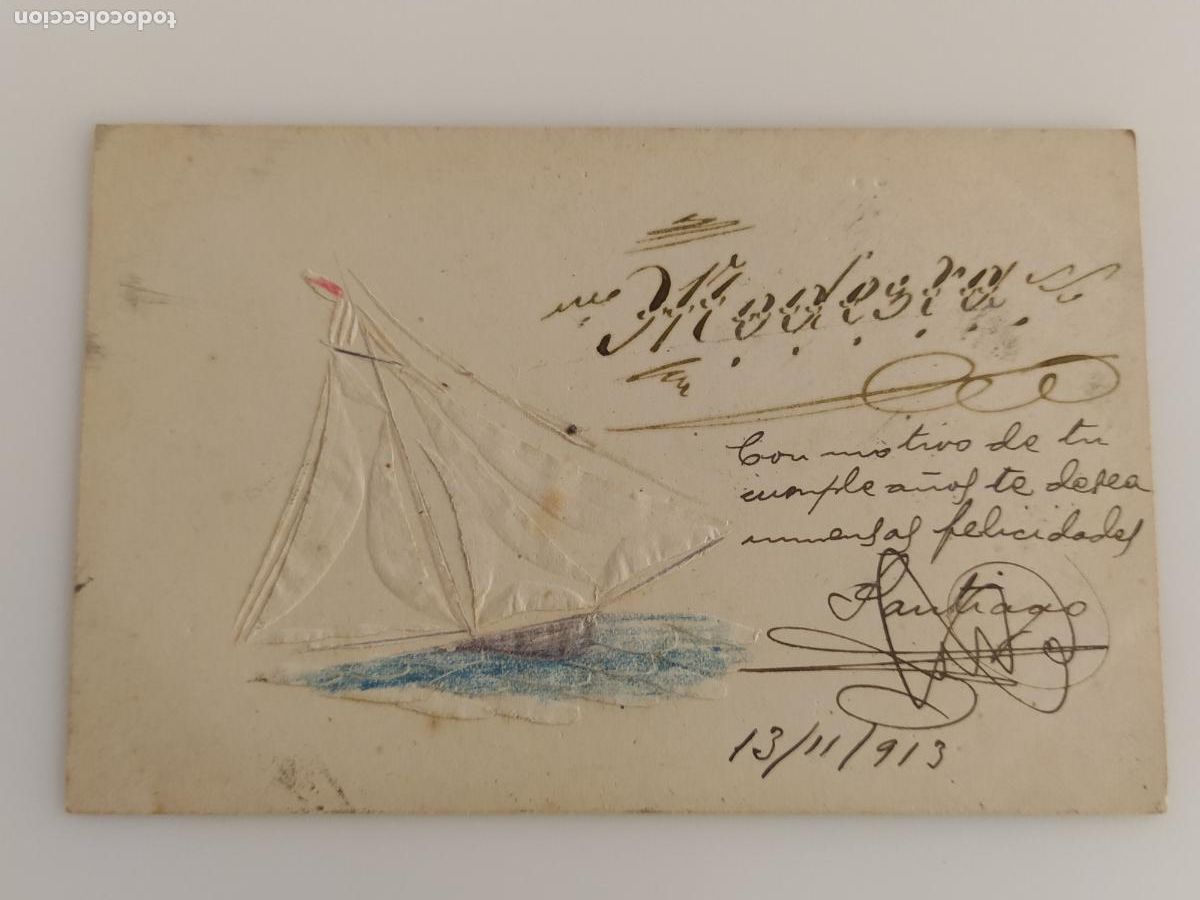 todocoleccion
Modesta
Con motivo de tu
cumpleaños te desea
inmensas felicidades
Santiago
13/11/913